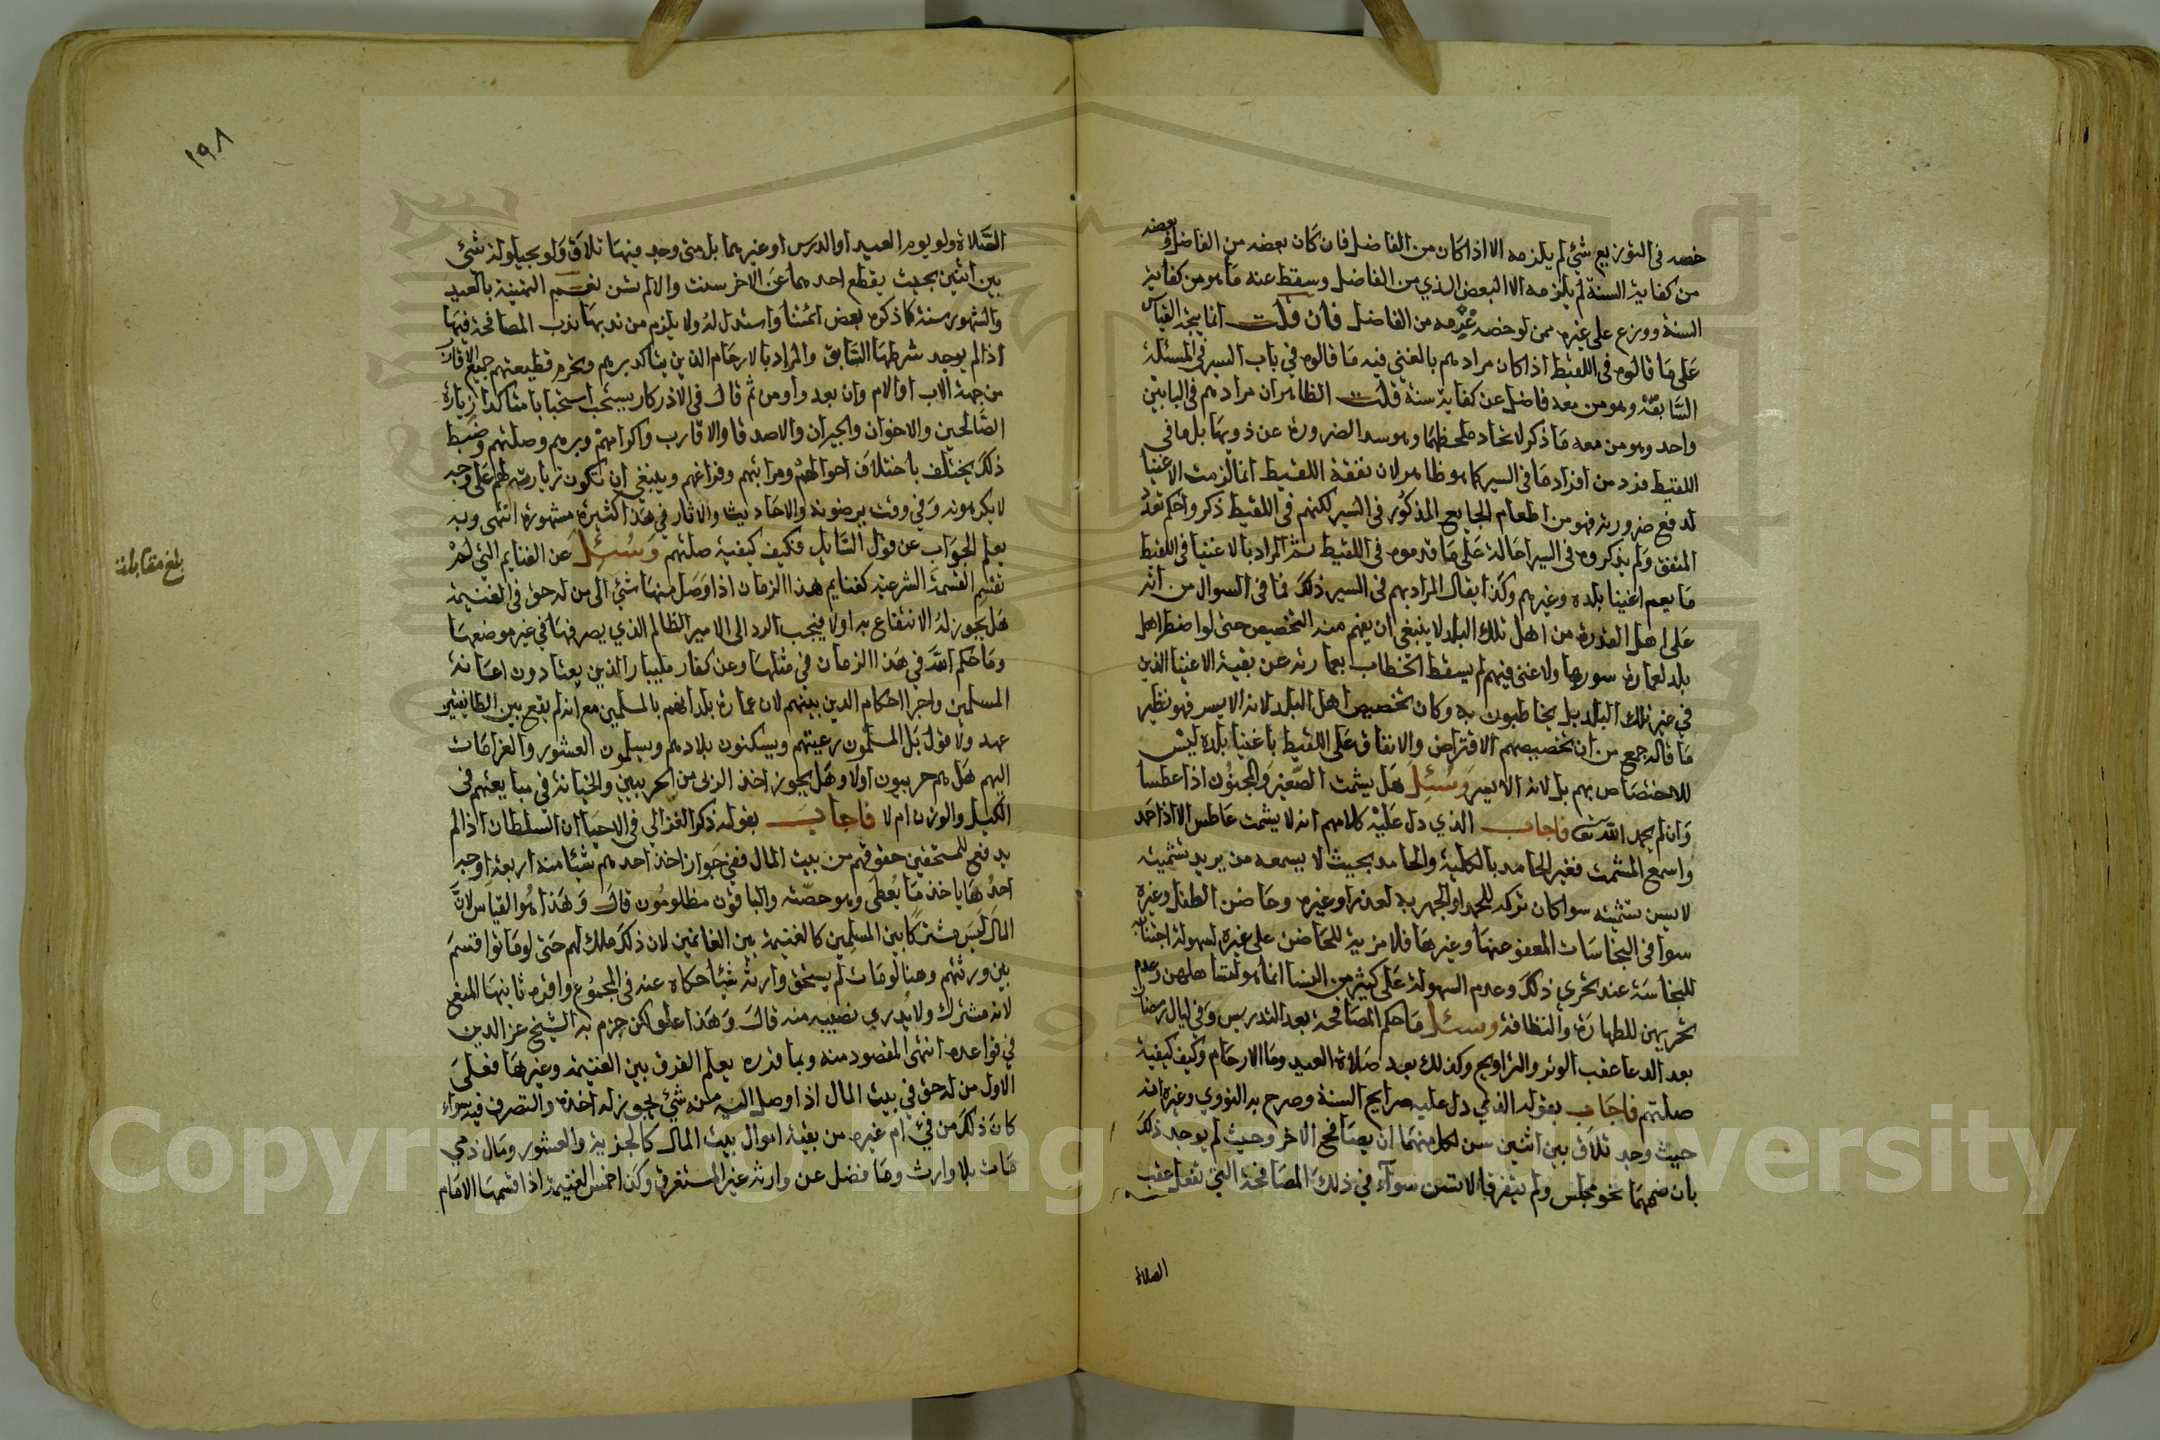 خصه في التوزيع شيء لم يلزمه الا اذا كان من الفاضل فان كان بعضه من الفاضل وبعضه
من كفاية السنة لم يلزمه الا البعض الذي من الفاضل وسقط عنه ما هو من كفاية
السنة ووزع على غيره ممن لو خصه غيره من الفاضل فان قلت انما يتجه القياس
على ما قالوه في اللقيط اذا كان مرادهم بالغني فيه ما قالوه في باب السير في المسئلة
السابقة وهو من معه فاضل عن كفاية سنة قلت الظاهر ان مرادهم في البابين
واحد وهو من معه ما ذكر لاتحاد ملحظهما وهو سد الضرورة عن ذويها بل ما في
اللقيط فرد من افراد ما في السير كما هو ظاهر لان نفقة اللقيط انما لزمت الاغنيا
لدفع ضرورته فهو من اطعام الجايع المذكور في السير لكنهم في اللقيط ذكروا حكم تعدد
المنفق ولم يذكروه في السير احالة على ما قدموه في اللقيط ثم المراد بالاغنيا في اللقيط
ما يعم اغنيا بلده وغيرهم وكذا يقال المراد بهم في السير ذلك فما في السوال من انه
على اهل القدرة من اهل تلك البلد لا ينبغي ان يفهم منه التخصيص حتى لو اضطر اهل
بلد لعمارة سورها ولا غني فيهم لم يسقط الخطاب بعمارته عن بقية الاغنيا الذين
في غير تلك البلد بل يخاطبون به وكان تخصيص اهل البلد لانه الايسر فهو نظير
ما قاله جمع من ان تخصيصهم الاقتراض والانفاق على اللقيط باغنيا بلده ليس
للاختصاص بهم بل لانه الايسر وسئل هل يشمت الصغير والمجنون اذا عطسا
وان لم يحمد الله تعا فاجاب الذي دل عليه كلامهم انه لا يشمت عاطس الا اذا حمد
واسمع المشمت فغير الحامد بالكلية والحامد بحيث لا يسمعه من يريد تشميته
لا يسن تشميته سوا كان تركه للحمد او الجهر به لعذر او غيره وحاضن الطفل وغيره
سوا في النجاسات المعفو عنها وغيرها فلا مزية للحاضن على غيره لسهولة اجتنابه
للنجاسة عند تحري ذلك وعدم السهولة على كثير من النسا انما هو لتساهلهن وعدم
تحريهن للطهارة والنظافة وسئل ما حكم المصافحة بعد التدريس وفي ليال رمضان
بعد الدعا عقب الوتر والتراويح وكذلك بعد صلاة العيد وما الارحام وكيف كيفية
صلتهم فاجاب بقوله الذي دل عليه صرايح السنة وصرح به النووي وغيره انه
حيث وجد تلاق بين اثنين سن لكل منهما ان يصافح الاخر وحيث لم يوجد ذلك
بان ضمهما نحو مجلس ولم يتفرقا لا تسن سوآء في ذلك المصافحة التي تفعل عقب
الصلاة
١٩٨
الصلاة ولو يوم العيد او الدرس او غيرهما بل متى وجد منهما تلاق ولو بحيلولة شيء
بين اثنين بحيث يقطع احدهما عن الاخر سنت والا لم تسن نعم التهنية بالعيد
والشهور سنة كما ذكره بعض ائمتنا واستدل له ولا يلزم من ندبها ندب المصافحة فيها
اذا لم يوجد شرطها السابق والمراد بالارحام الذين يتاكد برهم وتحرم قطيعتهم جميع الاقارب
من جهة الاب او الام وان بعدوا ومن ثم قال في الاذكار يستحب استحبابا متاكدا زيارة
الصالحين والاخوان والجيران والاصدقا والاقارب واكرامهم وبرهم وصلتهم وضبط
ذلك يختلف باختلاف احوالهم ومراتبهم وفراغهم وينبغي ان تكون زيارته لهم على وجه
لا يكرهونه وفي وقت يرضونه والاحاديث والاثار في هذا كثيرة مشهورة انتهى وبه
يعلم الجواب عن قول السايل فكيف كيفية صلتهم وسئل عن الغنايم التي لم
تقسم القسمة الشرعية كغنايم هذا الزمان اذا وصل منها شيء الى من له حق في الغنيمة
هل يجوز له الانتفاع به او لا فيجب الرد الى الامير الظالم الذي يصرفها في غير موضعها
وما حكم الله في هذا الزمان في مثلها وعن كفار مليبار الذين يعتادون اعانة
المسلمين واجرا احكام الدين بينهم لان عمارة بلدانهم بالمسلمين مع انه لم يقع بين الطايفتين
عهد ولا قول بل المسلمون رعيتهم ويسكنون بلادهم ويسلمون العشور والغرامات
اليهم هل هم حربيون او لا وهل يجوز اخذ الربى من الحربيين والخيانة في مبايعتهم في
الكيل والوزن ام لا فاجاب بقوله ذكر الغزالي في الاحيا ان السلطان اذا لم
يدفع للمستحقين حقوقهم من بيت المال ففي جواز اخذ احدهم شيئا منه اربعة اوجه
احدها ياخذ ما يعطى وهو حصته والباقون مظلومون قال وهذا هو القياس لان
المال ليس مشتركا بين المسلمين كالغنيمة بين الغانمين لان ذلك ملك لهم حتى لو ماتوا قسم
بين ورثتهم وهنا لو مات لم يستحق وارثه شيئا حكاه عنه في المجموع واقره ثانيها المنع
لانه مشترك ولا يدري نصيبه منه قال وهذا غلو لكن جزم به الشيخ عز الدين
في قواعده انتهى المقصود منه وبما قدره يعلم الفرق بين الغنيمة وغيرها فعلى
الاول من له حق في بيت المال اذا وصل اليه منه شيء يجوز له اخذه والتصرف فيه سواء
كان ذلك من فيء ام غيره من بقية اموال بيت المال كالجزية والعشور ومال ذمي
مات بلا وارث وما فضل عن وارثه غير المستغرق وكذا خمس الغنيمة اذا قسمها الامام
بلغ مقابلة
Copyright © King Saud University